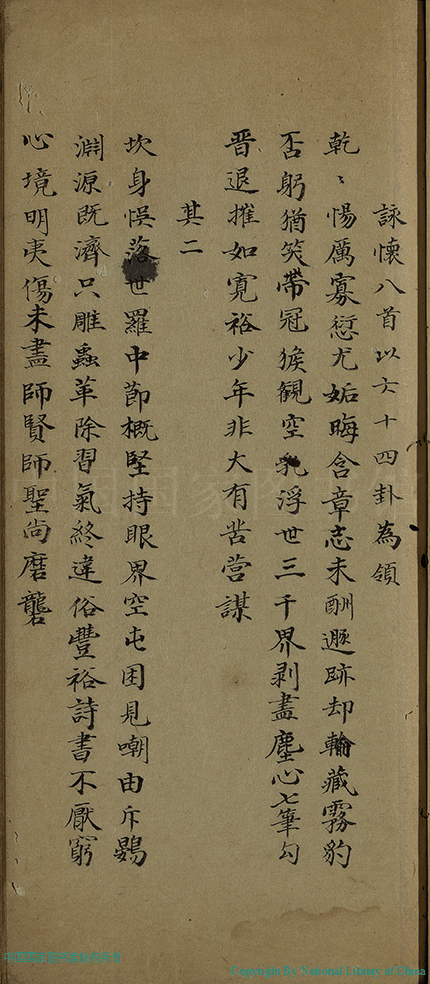 詠懷八首以六十四卦為領
乾〻惕厲寡愆尤姤晦含章志未酬遯跡却輸藏霧豹
否躬猶笑帶冠猴觀空浮世三千界剥盡塵心七筆勾
晋退摧如寬裕少年非大有苦營謀
其二
坎身悮落世羅中節概堅持眼界空屯困見嘲由斥鷃
淵源既濟只雕蟲革除習氣終違俗豐裕詩書不厭窮
心境明夷傷未盡師賢師聖尚磨礱
Copyright By National Library of China